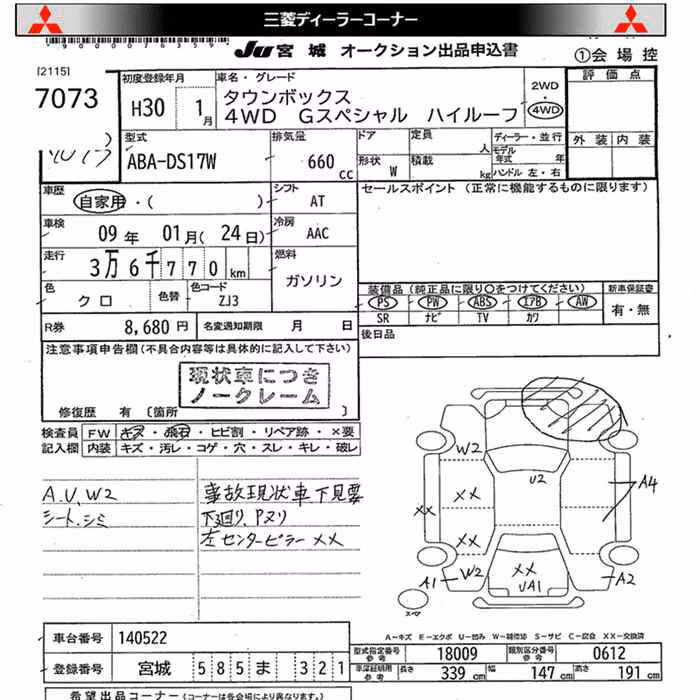 三菱ディーラーコーナー
Ju 宮城 オークション出品申込書
①会場控
[2115]
7073
初度登録年月
H30 1月
車名・グレード
タウンボックス
4WD Gスペシャル ハイルーフ
2WD
・
4WD
評価点
外装 内装
型式
ABA-DS17W
排気量
660 cc
ドア
形状 W
定員 人
積載 kg
ディーラー・並行
モデル年式 年
ハンドル 左・右
車歴
自家用・( )
シフト
AT
セールスポイント (正常に機能するものに限ります)
車検
09年 01月(24日)
冷房
AAC
走行
3万6千770km
燃料
ガソリン
色
クロ
色替
色コード
ZJ3
装備品 (純正品に限り○をつけてください)
新車保証書
PS PW ABS エアB AW
有・無
SR ナビ TV カワ
R券 8,680円
名変通知期限 月 日
後日品
注意事項申告欄(不具合内容等は具体的に記入して下さい)
現状車につき
ノークレーム
修復歴 有 [箇所 ]
検査員
記入欄
FW キズ・飛石・ヒビ割・リペア跡・×要
内装 キズ・汚レ・コゲ・穴・スレ・キレ・破レ
A.U.W2
シート.シミ
事故現状車下見要
下廻り.Pヌリ
左センターピラー××
W2
××
××
W2
A1
U2
××
UA1
A4
A2
スペア
A-キズ E-エクボ U-凹み W-補修跡 S-サビ C-腐食 XX-交換済
車台番号 140522
型式指定番号
参考
18009
類別区分番号
参考
0612
登録番号 宮城 585ま 321
車検証明用
参考
長さ 339cm 幅 147cm 高さ 191cm
希望出品コーナー(コーナーは各会場により異なります。)